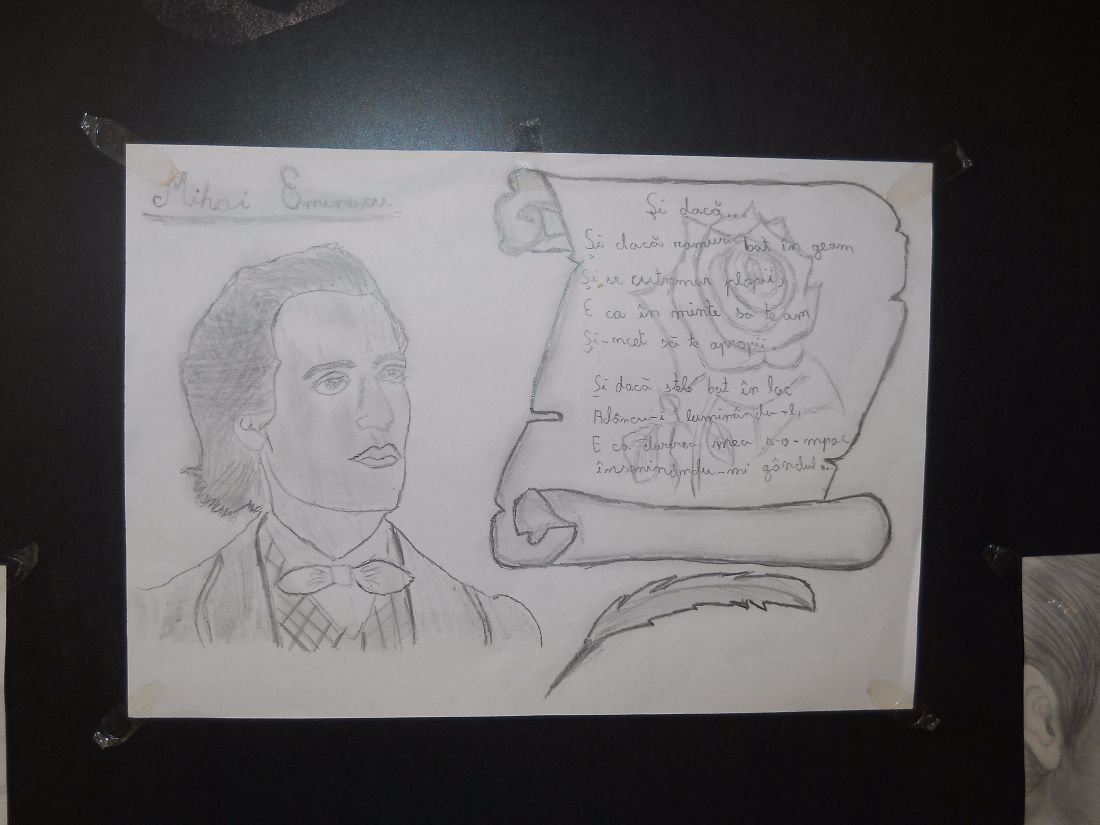 Mihai Eminescu
Și dacă...
Și dacă ramuri bat în geam
Și se cutremur plopii,
E ca în minte să te am
Și-ncet să te apropii.
Și dacă stele bat în lac
Adâncu-i luminându-l,
E ca durerea mea s-o-mpac
înseninându-mi gândul..